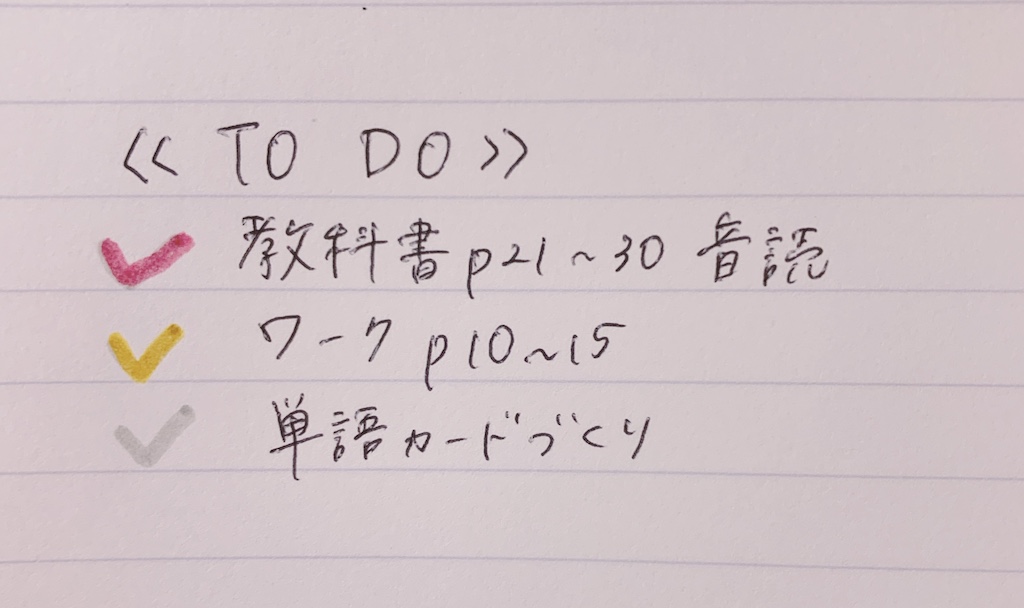 << TO DO >>
✓ 教科書p21~30 音読
✓ ワークp10~15
✓ 単語カードづくり